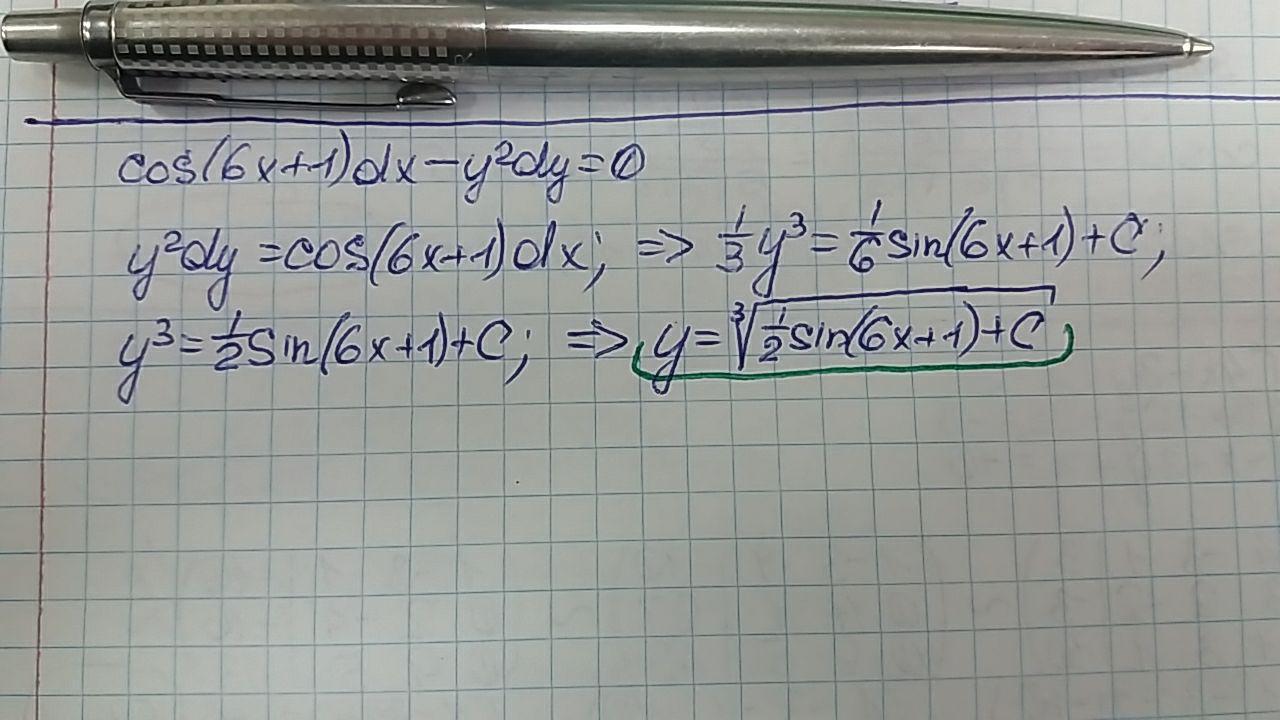 cos(6x+1)dx-y²dy=0
y²dy=cos(6x+1)dx; => 1/3 y³=1/6 sin(6x+1)+C;
y³=1/2 sin(6x+1)+C; => y=∛(1/2 sin(6x+1)+C)